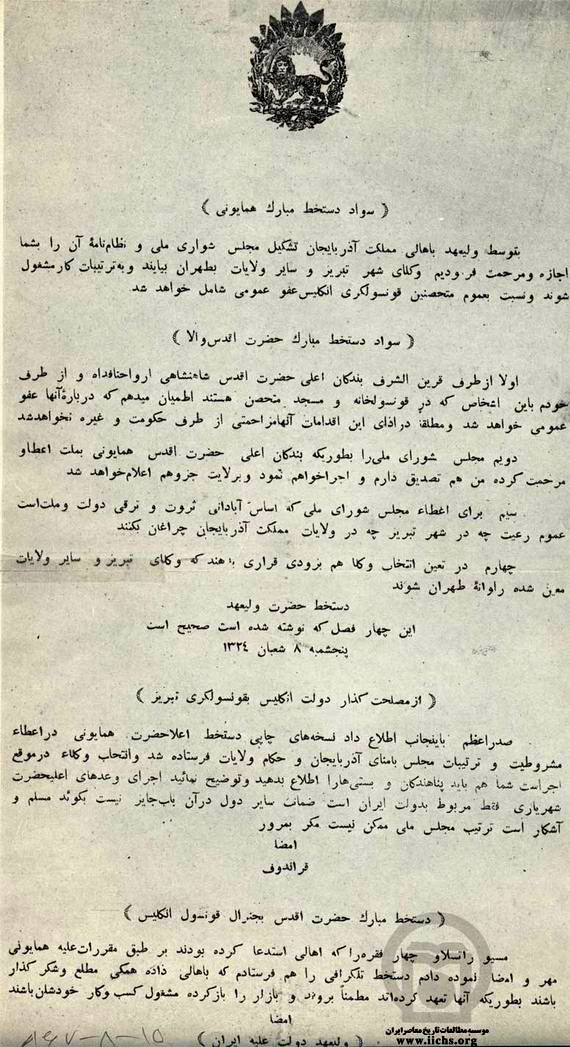 ( سواد دستخط مبارك همايونى )
بتوسط وليعهد باهالى مملكت آذربايجان تشكيل مجلس شوراى ملى و نظام‌نامهٔ آن را بشما
اجازه ومرحمت فرموديم وكلاى شهر تبريز و ساير ولايات بطهران بيايند و به‌ترتيبات كار مشغول
شوند ونسبت بعموم متحصنين قونسولكرى انكليس عفو عمومى شامل خواهد شد
( سواد دستخط مبارك حضرت اقدس والا )
اولا از طرف قرين الشرف بندكان اعلى حضرت اقدس شاهنشاهى ارواحنافداه و از طرف
خودم باين اشخاص كه در قونسولخانه و مسجد متحصن هستند اطميان ميدهم كه دربارهٔ آنها عفو
عمومى خواهد شد ومطلقا درازاى اين اقدامات آنها مزاحمتى از طرف حكومت و غيره نخواهد شد
دويم مجلس شوراى ملى را بطوريكه بندكان اعلى حضرت اقدس همايونى بملت اعطا و
مرحمت كرده من هم تصديق دارم و اجرا خواهم نمود وبرلايت جزوهم اعلام خواهد شد
سيم براى اغطاء مجلس شوراى ملى كه اساس آبادانى ثروت و ترقى دولت وملت است
عموم رعيت چه در شهر تبريز چه در ولايات مملكت آذربايجان چراغان بكنند
چهارم در تعين انتخاب وكلا هم بزودى قرارى بدهند كه وكلاى تبريز و ساير ولايات
معين شده روانهٔ طهران شوند
دستخط حضرت وليعهد
اين چهار فصل كه نوشته شده است صحيح است
پنجشنبه ٨ شعبان ١٣٢٤
( از مصلحت كذار دولت انكليس بقونسولكرى تبريز )
صدراعظم باينجانب اطلاع داد نسخه‌هاى چاپى دستخط اعلاحضرت همايونى دراعطاء
مشروطيت و ترتيبات مجلس بامناى آذربايجان و حكام ولايات فرستاده شد وانتخاب وكلاء درموقع
اجراست شما هم بايد پناهندكان و بستى‌هارا اطلاع بدهيد وتوضيح نمائيد اجراى وعدهاى اعليحضرت
شهريارى فقط مربوط بدولت ايران است ضمانت ساير دول درآن باب جايز نيست بكوئد مسلم و
آشكار است ترتيب مجلس ملى ممكن نيست مكر بمرور
امضا
قراندوف
( دستخط مبارك حضرت اقدس بجنرال قونسول انكليس )
مسيو راتسلاو چهار فقره را كه اهالى استدعا كرده بودند بر طبق مقررات عليه همايونى
مهر و امضا نموده دادم دستخط تلكرافى را هم فرستادم كه باهالى داده همكى مطلع وشكر كذار
باشند بطوريكه آنها تعهد كرده‌اند مطمئنا بروند و بازار را باز كرده مشغول كسب وكار خودشان باشند
امضا
( وليعهد دولت عليه ايران )
موسسه مطالعات تاريخ معاصر ايران
www.iichs.org